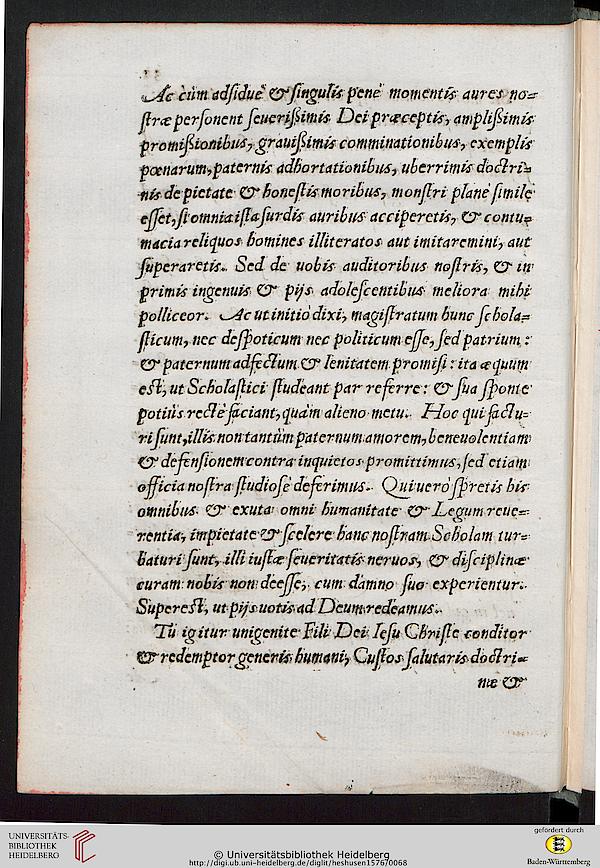 Ac cùm adsiduè & singulis penè momentis aures no=
stræ personent seuerißimis Dei præceptis, amplißimis
promißionibus, grauißimis comminationibus, exemplis
pœnarum, paternis adhortationibus, uberrimis doctri=
nis de pietate & honestis moribus, monstri planè simile
esset, si omnia ista surdis auribus acciperetis, & contu=
macia reliquos homines illiteratos aut imitaremini, aut
superaretis. Sed de uobis auditoribus nostris, & in
primis ingenuis & pijs adolescentibus meliora mihi
polliceor. Ac ut initio dixi, magistratum hunc schola=
sticum, nec despoticum nec politicum esse, sed patrium:
& paternum adfectum & lenitatem promisi: ita æquum
est, ut Scholastici studeant par referre: & sua sponte
potiùs rectè faciant, quàm alieno metu. Hoc qui factu=
ri sunt, illis non tantùm paternum amorem, beneuolentiam
& defensionem contra inquietos promittimus, sed etiam
officia nostra studiosè deferimus. Qui uerò spretis his
omnibus & exuta omni humanitate & Legum reue=
rentia, impietate & scelere hanc nostram Scholam tur=
baturi sunt, illi iustæ seueritatis neruos, & disciplinæ
curam nobis non deesse, cum damno suo experientur.
Superest, ut pijs uotis ad Deum redeamus.
Tu igitur unigenite Fili Dei Iesu Christe conditor
& redemptor generis humani, Custos salutaris doctri=
næ &
UNIVERSITÄTS-
BIBLIOTHEK
HEIDELBERG
© Universitätsbibliothek Heidelberg
http://digi.ub.uni-heidelberg.de/diglit/heshusen157670068
gefördert durch
Baden-Württemberg